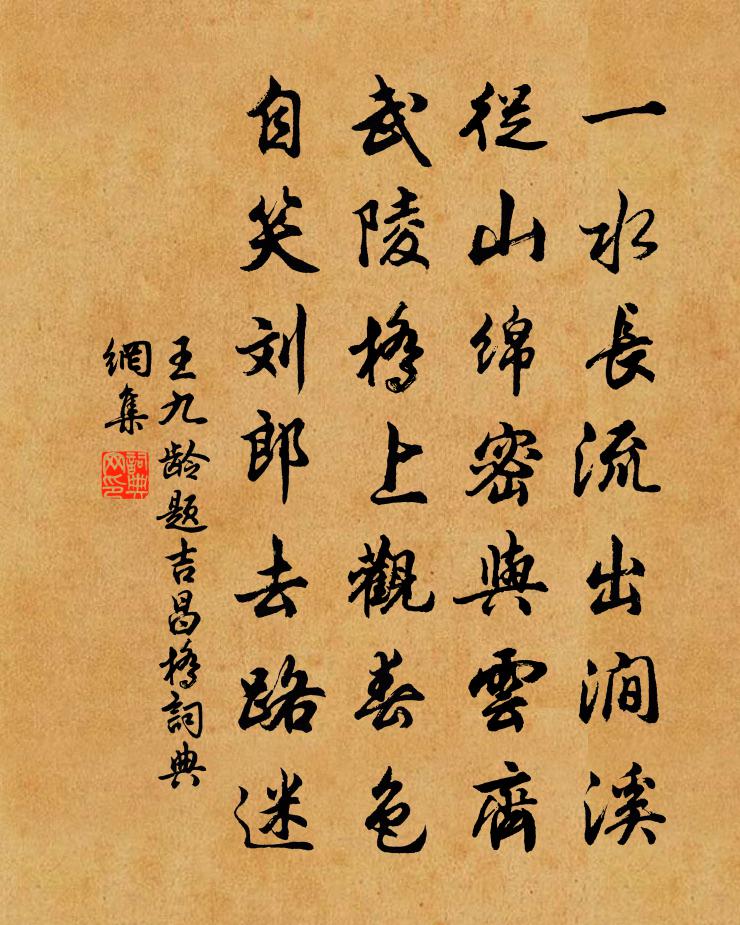 一水長流出澗溪
從山綿密與雲齊
武陵橋上觀春色
自笑刘郎去路迷
王九龄题吉昌橋詞典
網集
詞典
网印